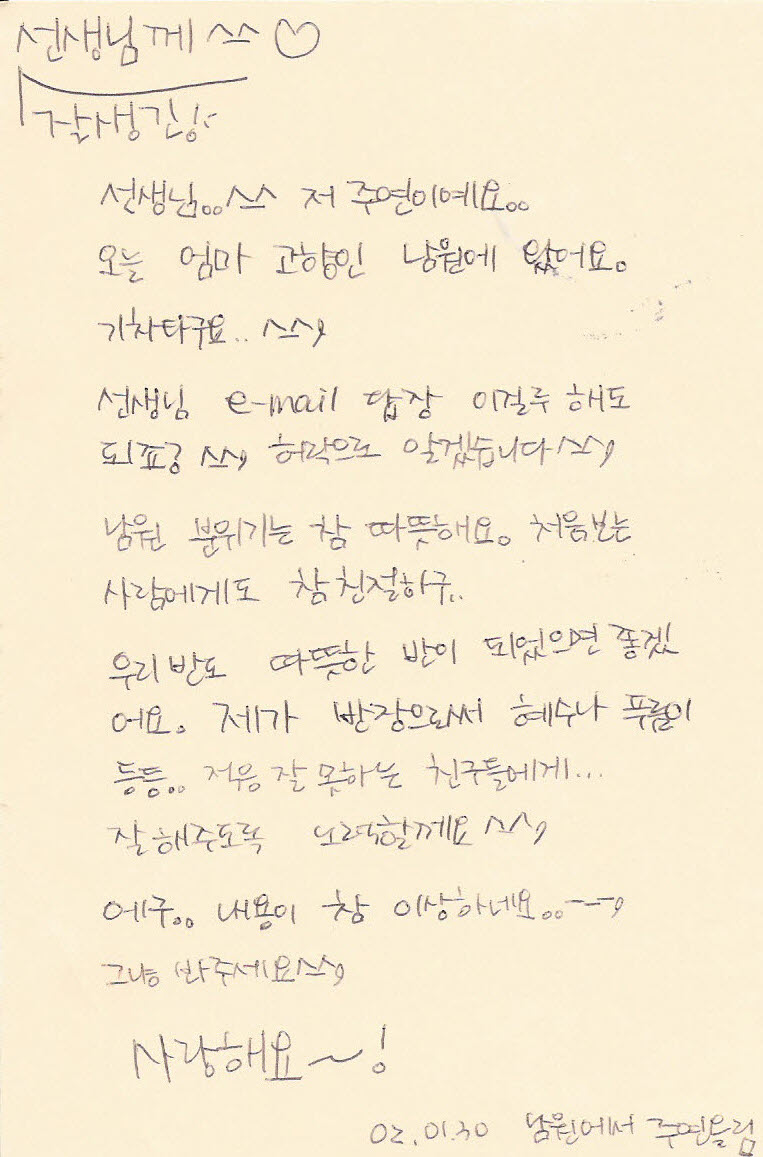 선생님께 ^^ ♡
잘생긴!
선생님.. ^^ 저 주연이예요..
오늘 엄마 고향인 남원에 왔어요.
기차타구요.. ^^;
선생님 e-mail 답장 이걸루 해도
되죠? ^^; 허락으로 알겠습니다 ^^;
남원 분위기는 참 따뜻해요. 처음보는
사람에게도 참 친절하구..
우리반도 따뜻한 반이 되었으면 좋겠
어요. 제가 반장으로써 혜수나 푸름이
등등.. 적응 잘 못하는 친구들에게...
잘해주도록 노력할께요 ^^;
에구.. 내용이 참 이상하네요.. --;
그냥 봐주세요 ^^;
사랑해요~!
02.01.30 남원에서 주연올림